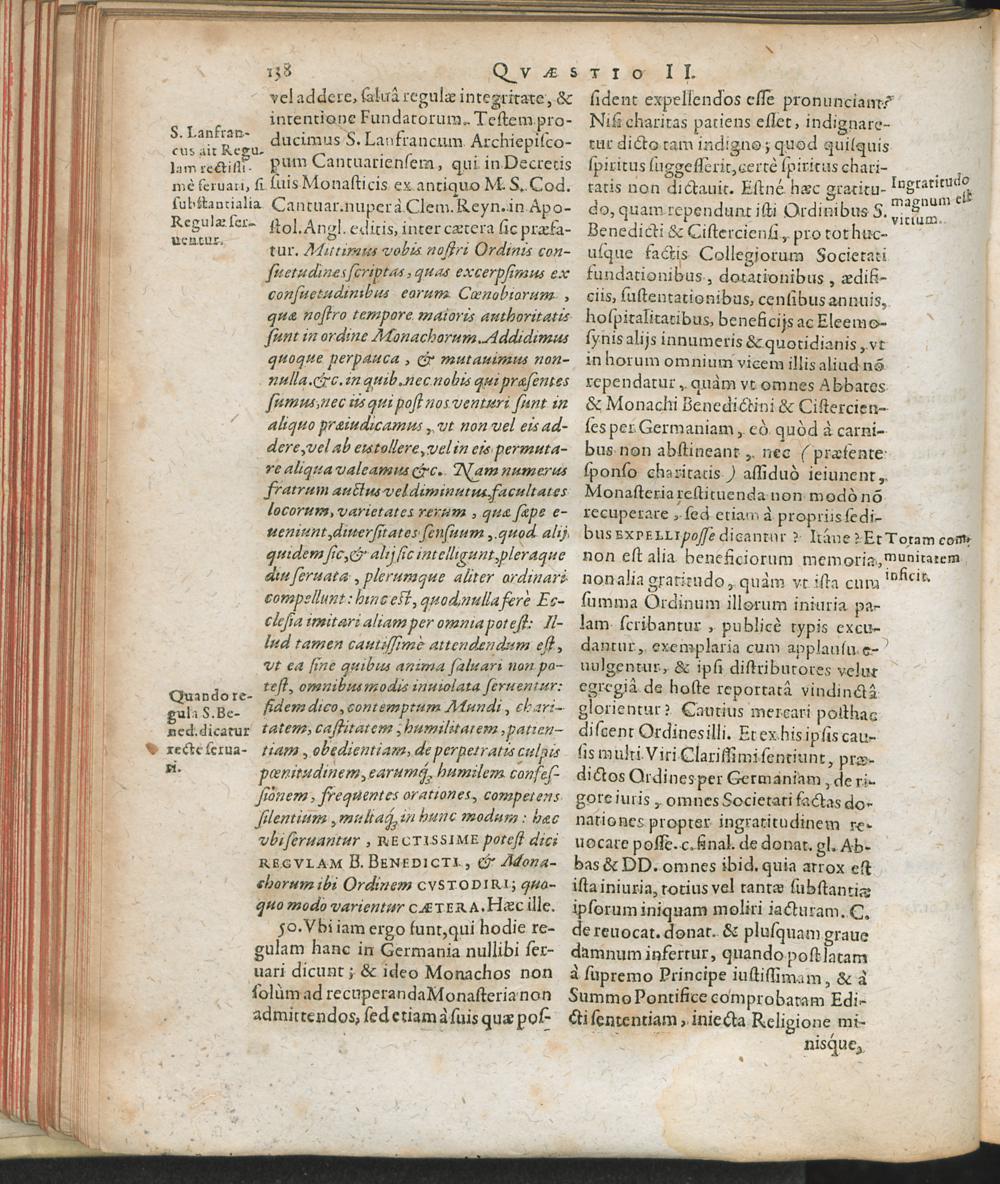 138
QVÆSTIO II.
vel addere, saluâ regulæ integritate, &
intentione Fundatorum. Testem pro-
ducimus S. Lanfrancum Archiepisco-
pum Cantuariensem, qui in Decretis
suis Monasticis ex antiquo M. S. Cod.
Cantuar. nuper à Clem. Reyn. in Apo-
stol. Angl. editis, inter cætera sic præfa-
tur. Mittimus vobis nostri Ordinis con-
suetudines scriptas, quas excerpsimus ex
consuetudinibus eorum Cœnobiorum,
quæ nostro tempore maioris authoritatis
sunt in ordine Monachorum. Addidimus
quoque perpauca, & mutauimus non-
nulla. &c. in quib. nec nobis qui præsentes
sumus, nec iis qui post nos venturi sunt in
aliquo præiudicamus, vt non vel eis ad-
dere, vel ab eis tollere, vel in eis permuta-
re aliqua valeamus &c. Nam numerus
fratrum auctus vel diminutus, facultates
locorum, varietates rerum, quæ sæpe e-
ueniunt, diuersitates sensuum, quod alij
quidem sic, & alij sic intelligunt, pleraque
diu seruata, plerumque aliter ordinari
compellunt: hinc est, quod, nulla ferè Ec-
clesia imitari aliam per omnia potest: Il-
lud tamen cautissimè attendendum est,
vt ea sine quibus anima saluari non po-
test, omnibus modis inuiolata seruentur:
fidem dico, contemptum Mundi, chari-
tatem, castitatem, humilitatem, patien-
tiam, obedientiam, de perpetratis culpis
pœnitudinem, earumq́, humilem confes-
sionem, frequentes orationes, competens
silentium, multaq́, in hunc modum: hæc
vbi seruantur, RECTISSIME potest dici
REGVLAM B. BENEDICTI, & Mona-
chorum ibi Ordinem CVSTODIRI; quo-
quo modo varientur CÆTERA. Hæc ille.
50. Vbi iam ergo sunt, qui hodie re-
gulam hanc in Germania nullibi ser-
uari dicunt; & ideo Monachos non
solùm ad recuperanda Monasteria non
admittendos, sed etiam à suis quæ pos-
S. Lanfran-
cus ait Regu-
lam rectissi-
mè seruari, si
substantialia
Regulæ ser-
uentur.
Quando re-
gula S. Be-
ned. dicatur
recte serua-
ri.
sident expellendos esse pronunciant?
Nisi charitas patiens esset, indignare-
tur dicto tam indigno; quod quisquis
spiritus suggesserit, certè spiritus chari-
tatis non dictauit. Estné hæc gratitu-
do, quam rependunt isti Ordinibus S.
Benedicti & Cisterciensi, pro tot huc-
usque factis Collegiorum Societati
fundationibus, dotationibus, ædifi-
ciis, sustentationibus, censibus annuis,
hospitalitatibus, beneficijs ac Eleemo-
synis alijs innumeris & quotidianis, vt
in horum omnium vicem illis aliud nō
rependatur, quàm vt omnes Abbates
& Monachi Benedictini & Cistercien-
ses per Germaniam, eò quòd à carni-
bus non abstineant, nec (præsente
sponso charitatis) assiduò ieiunent,
Monasteria restituenda non modò nō
recuperare, sed etiam à propriis sedi-
bus EXPELLI posse dicantur? Itáne? Et
non est alia beneficiorum memoria,
non alia gratitudo, quàm vt ista cum
summa Ordinum illorum iniuria pa-
lam scribantur, publicè typis excu-
dantur, exemplaria cum applausu e-
uulgentur, & ipsi distributores velut
egregiâ de hoste reportatâ vindictâ
glorientur? Cautius mercari posthac
discent Ordines illi. Et ex his ipsis cau-
sis multi Viri Clarissimi sentiunt, præ-
dictos Ordines per Germaniam, de ri-
gore iuris, omnes Societati factas do-
nationes propter ingratitudinem re-
uocare posse. c. final. de donat. gl. Ab-
bas & DD. omnes ibid. quia atrox est
ista iniuria, totius vel tantæ substantiæ
ipsorum iniquam moliri iacturam. C.
de reuocat. donat. & plusquam graue
damnum infertur, quando post latam
à supremo Principe iustissimam, & à
Summo Pontifice comprobatam Edi-
cti sententiam, iniecta Religione mi-
nisq́ue,
Ingratitudo
magnum est
vitium.
Totam com-
munitatem
inficit.